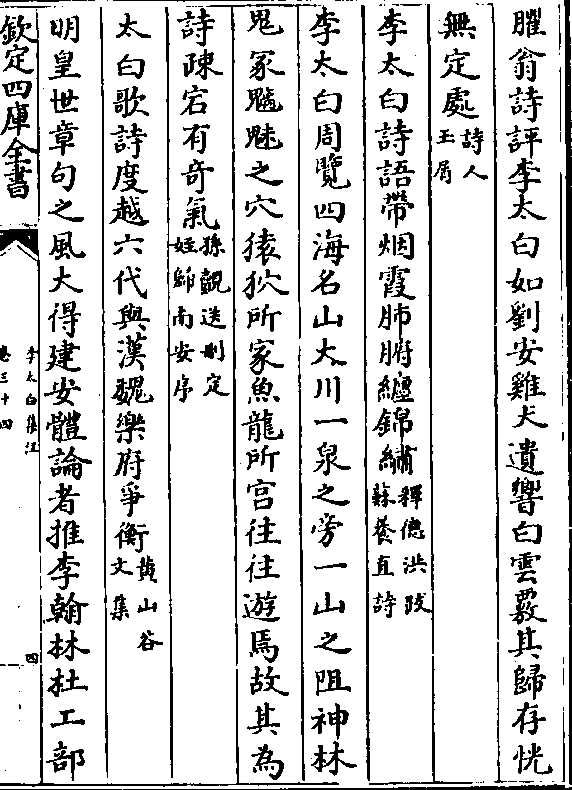 臞翁詩評李太白如劉安雞犬遺響白雲覈其歸存恍
無定處詩人玉屑
李太白詩語帶烟霞肺腑纏錦繡釋德洪跋蘇養直詩
李太白周覽四海名山大川一泉之旁一山之阻神林
鬼冢魑魅之穴猿狖所家魚龍所宮往往遊焉故其為
詩疎宕有奇氣孫覿送刪定姪歸南安序
太白歌詩度越六代與漢魏樂府爭衡黃山谷文集
明皇世章句之風大得建安體論者推李翰林杜工部
欽定四庫全書
李太白集注
卷三十四
四